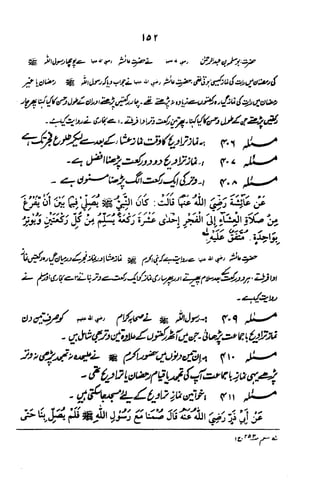 ۱۵۲
حضرت ابو سلمہ بن عبدالرحمٰن رضی اللہ عنہ نے حضرت عائشہ رضی اللہ عنہا سے پوچھا رسول اللہ ﷺ
کی رمضان میں رات کی نماز کیسی ہوتی تھی، حضرت عائشہ رضی اللہ عنہا نے جواب دیا کہ رسول اللہ ﷺ رمضان یا غیر
رمضان میں رات کی نماز گیارہ رکعتوں سے زیادہ نہ پڑھتے تھے۔ چار رکعتیں پڑھتے اور ان کے طول و حسن کا کیا کہنا پھر چار
رکعتیں پڑھتے جن کے طول و حسن کا کیا کہنا، پھر تین رکعت وتر ادا فرماتے۔ اسے بخاری نے روایت کیا ہے۔
مسئلہ ۴۰۶ ۔ نماز تراویح کا وقت نماز عشاء کے بعد سے لیکر طلوع فجر تک ہے
مسئلہ ۴۰۷ ۔ نماز تراویح دو دو رکعت پڑھنا افضل ہے۔
مسئلہ ۴۰۸ ۔ وتر کی ایک رکعت الگ پڑھنا مسنون ہے۔
عَنْ عَائِشَةَ رَضِيَ اللهُ عَنْهَا قَالَتْ: كَانَ النَّبِيُّ ﷺ يُصَلِّي فِيْمَا بَيْنَ أَنْ يَفْرُغَ
مِنْ صَلَاةِ الْعِشَاءِ إِلَى الْفَجْرِ إِحْدٰى عَشْرَةَ رَكْعَةً يُسَلِّمُ مِنْ كُلِّ رَكْعَتَيْنِ وَيُوْتِرُ
بِوَاحِدَةٍ. مُتَّفَقٌ عَلَيْهِ
حضرت عائشہ رضی اللہ عنہا سے روایت ہے کہ نبی اکرم ﷺ نماز عشاء اور نماز فجر کے درمیان گیارہ رکعتیں نماز
ادا فرماتے، ہر دو رکعت کے بعد سلام پھیرتے اور پھر ساری نماز کو ایک رکعت سے وتر بناتے اسے بخاری اور مسلم نے
روایت کیا ہے۔
مسئلہ ۴۰۹ ۔ رسول اللہ ﷺ نے صحابہ کرام رضی اللہ عنہم کو صرف تین دن
نماز تراویح باجماعت پڑھائی، جن میں آٹھ رکعتوں کے علاوہ تین وتر بھی شامل ہیں۔
مسئلہ ۴۱۰ ۔ ان تین دنوں میں حضور اکرم ﷺ نے علیحدہ نہ تہجد پڑھی نہ وتر
پڑھے یہی نماز باجماعت آپ کی تہجد یا قیام رمضان یا تراویح تھی۔
مسئلہ ۴۱۱ ۔ خواتین نماز تراویح کے لیے مسجد جا سکتی ہیں۔
عَنْ أَبِي ذَرٍّ رَضِيَ اللهُ عَنْهُ قَالَ صُمْنَا مَعَ رَسُوْلِ اللهِ ﷺ فَلَمْ يُصَلِّ بِنَا حَتّٰى